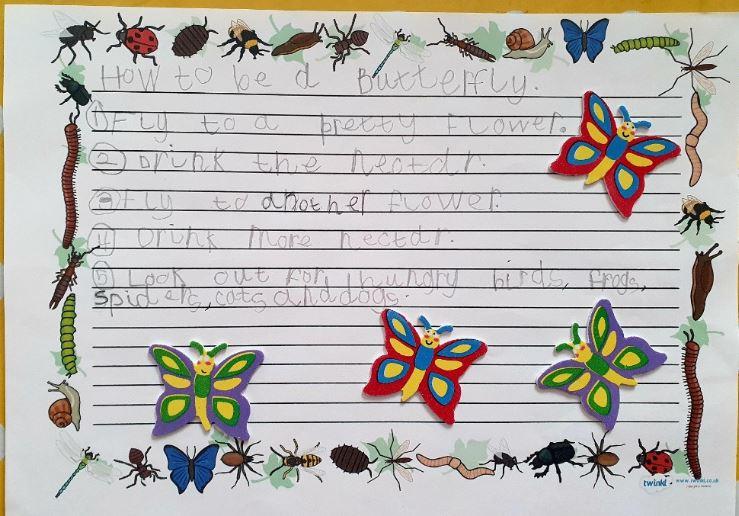 How to be a Butterfly.
① Fly to a pretty flower.
② Drink the nectar.
③ Fly to another flower.
④ Drink more nectar.
⑤ Look out for hungry birds, frogs,
spiders, cats and dogs.
twinkl www.twinkl.co.uk